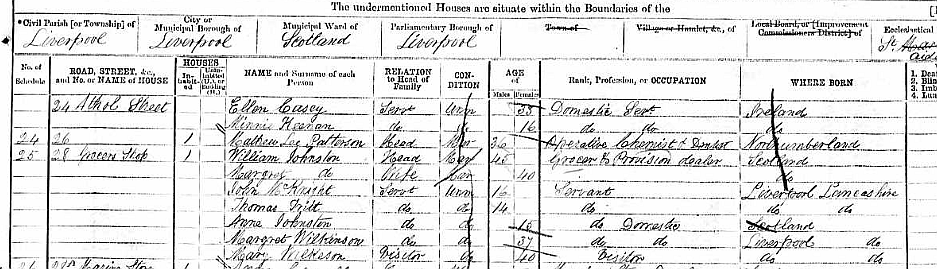 The undermentioned Houses are situate within the Boundaries of the
*Civil Parish [or Township] of
Liverpool
City or Municipal Borough of
Liverpool
Municipal Ward of
Scotland
Parliamentary Borough of
Liverpool
Town of
Village or Hamlet, &c., of
Local Board, or [Improvement Commissioners District] of
Ecclesiastical
St
No. of Schedule
ROAD, STREET, &c., and No. or NAME of HOUSE
HOUSES
Inhabited
Uninhabited (U.), or Building (B.)
NAME and Surname of each Person
RELATION to Head of Family
CONDITION
AGE of
Males
Females
Rank, Profession, or OCCUPATION
WHERE BORN
24 Athol Street Ellen Casey Servt Unm 33 Domestic Servt Ireland
Minnie Keenan do do 16 do do do
24 26 1 Mathew Lee Patterson Head 36 Operative Chemist & Dentist Northumberland
25 28 Grocers Shop 1 William Johnston Head Mar 45 Grocer & Provision dealer Scotland
Margret do Wife Mar 40 do
John McKnight Servt Unm 16 Servant Liverpool Lancashire
Thomas do do 14 do do do
Anne Johnston do do 15 do Domestic Scotland
Margret Wilkinson do do 37 do do Liverpool do
Mary Wilkeson Visitor do 40 Visitor do do